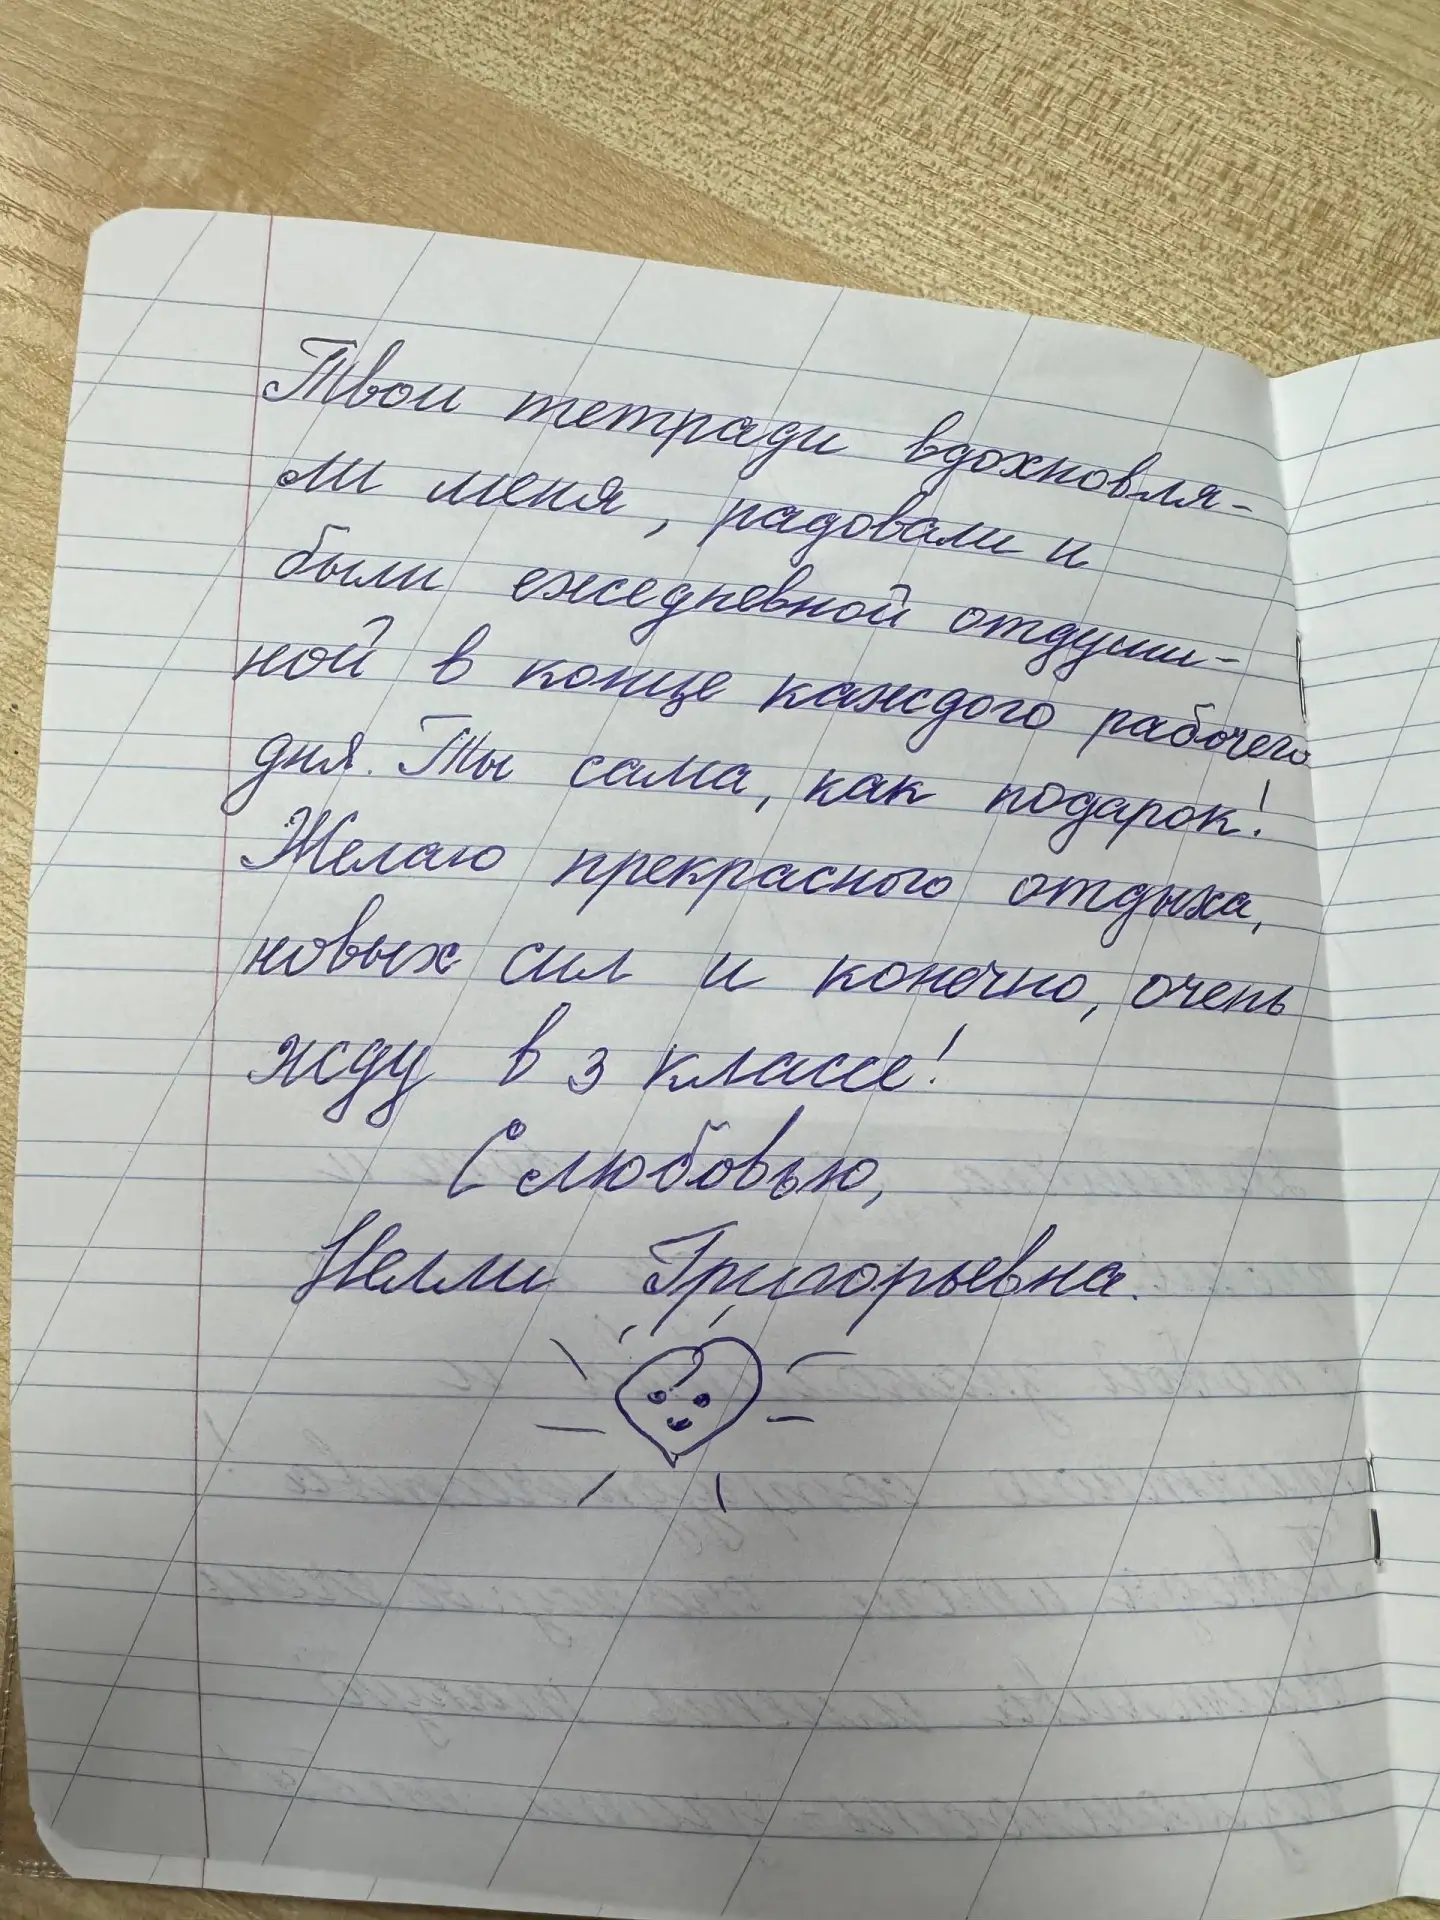 Твои тетради вдохновля-
ли меня, радовали и
были ежедневной отдуши-
ной в конце каждого рабочего
дня. Ты сама, как подарок!
Желаю прекрасного отдыха,
новых сил и конечно, очень
жду в 3 классе!
С любовью,
Нелли Григорьевна.